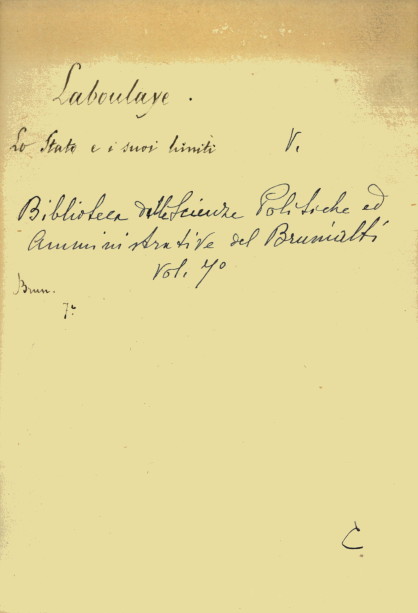 Laboulaye.
Lo Stato e i suoi limiti V.
Biblioteca delle Scienze Politiche ed
Amministrative del Brunialti
Vol. 7º
Brun.
7º
C